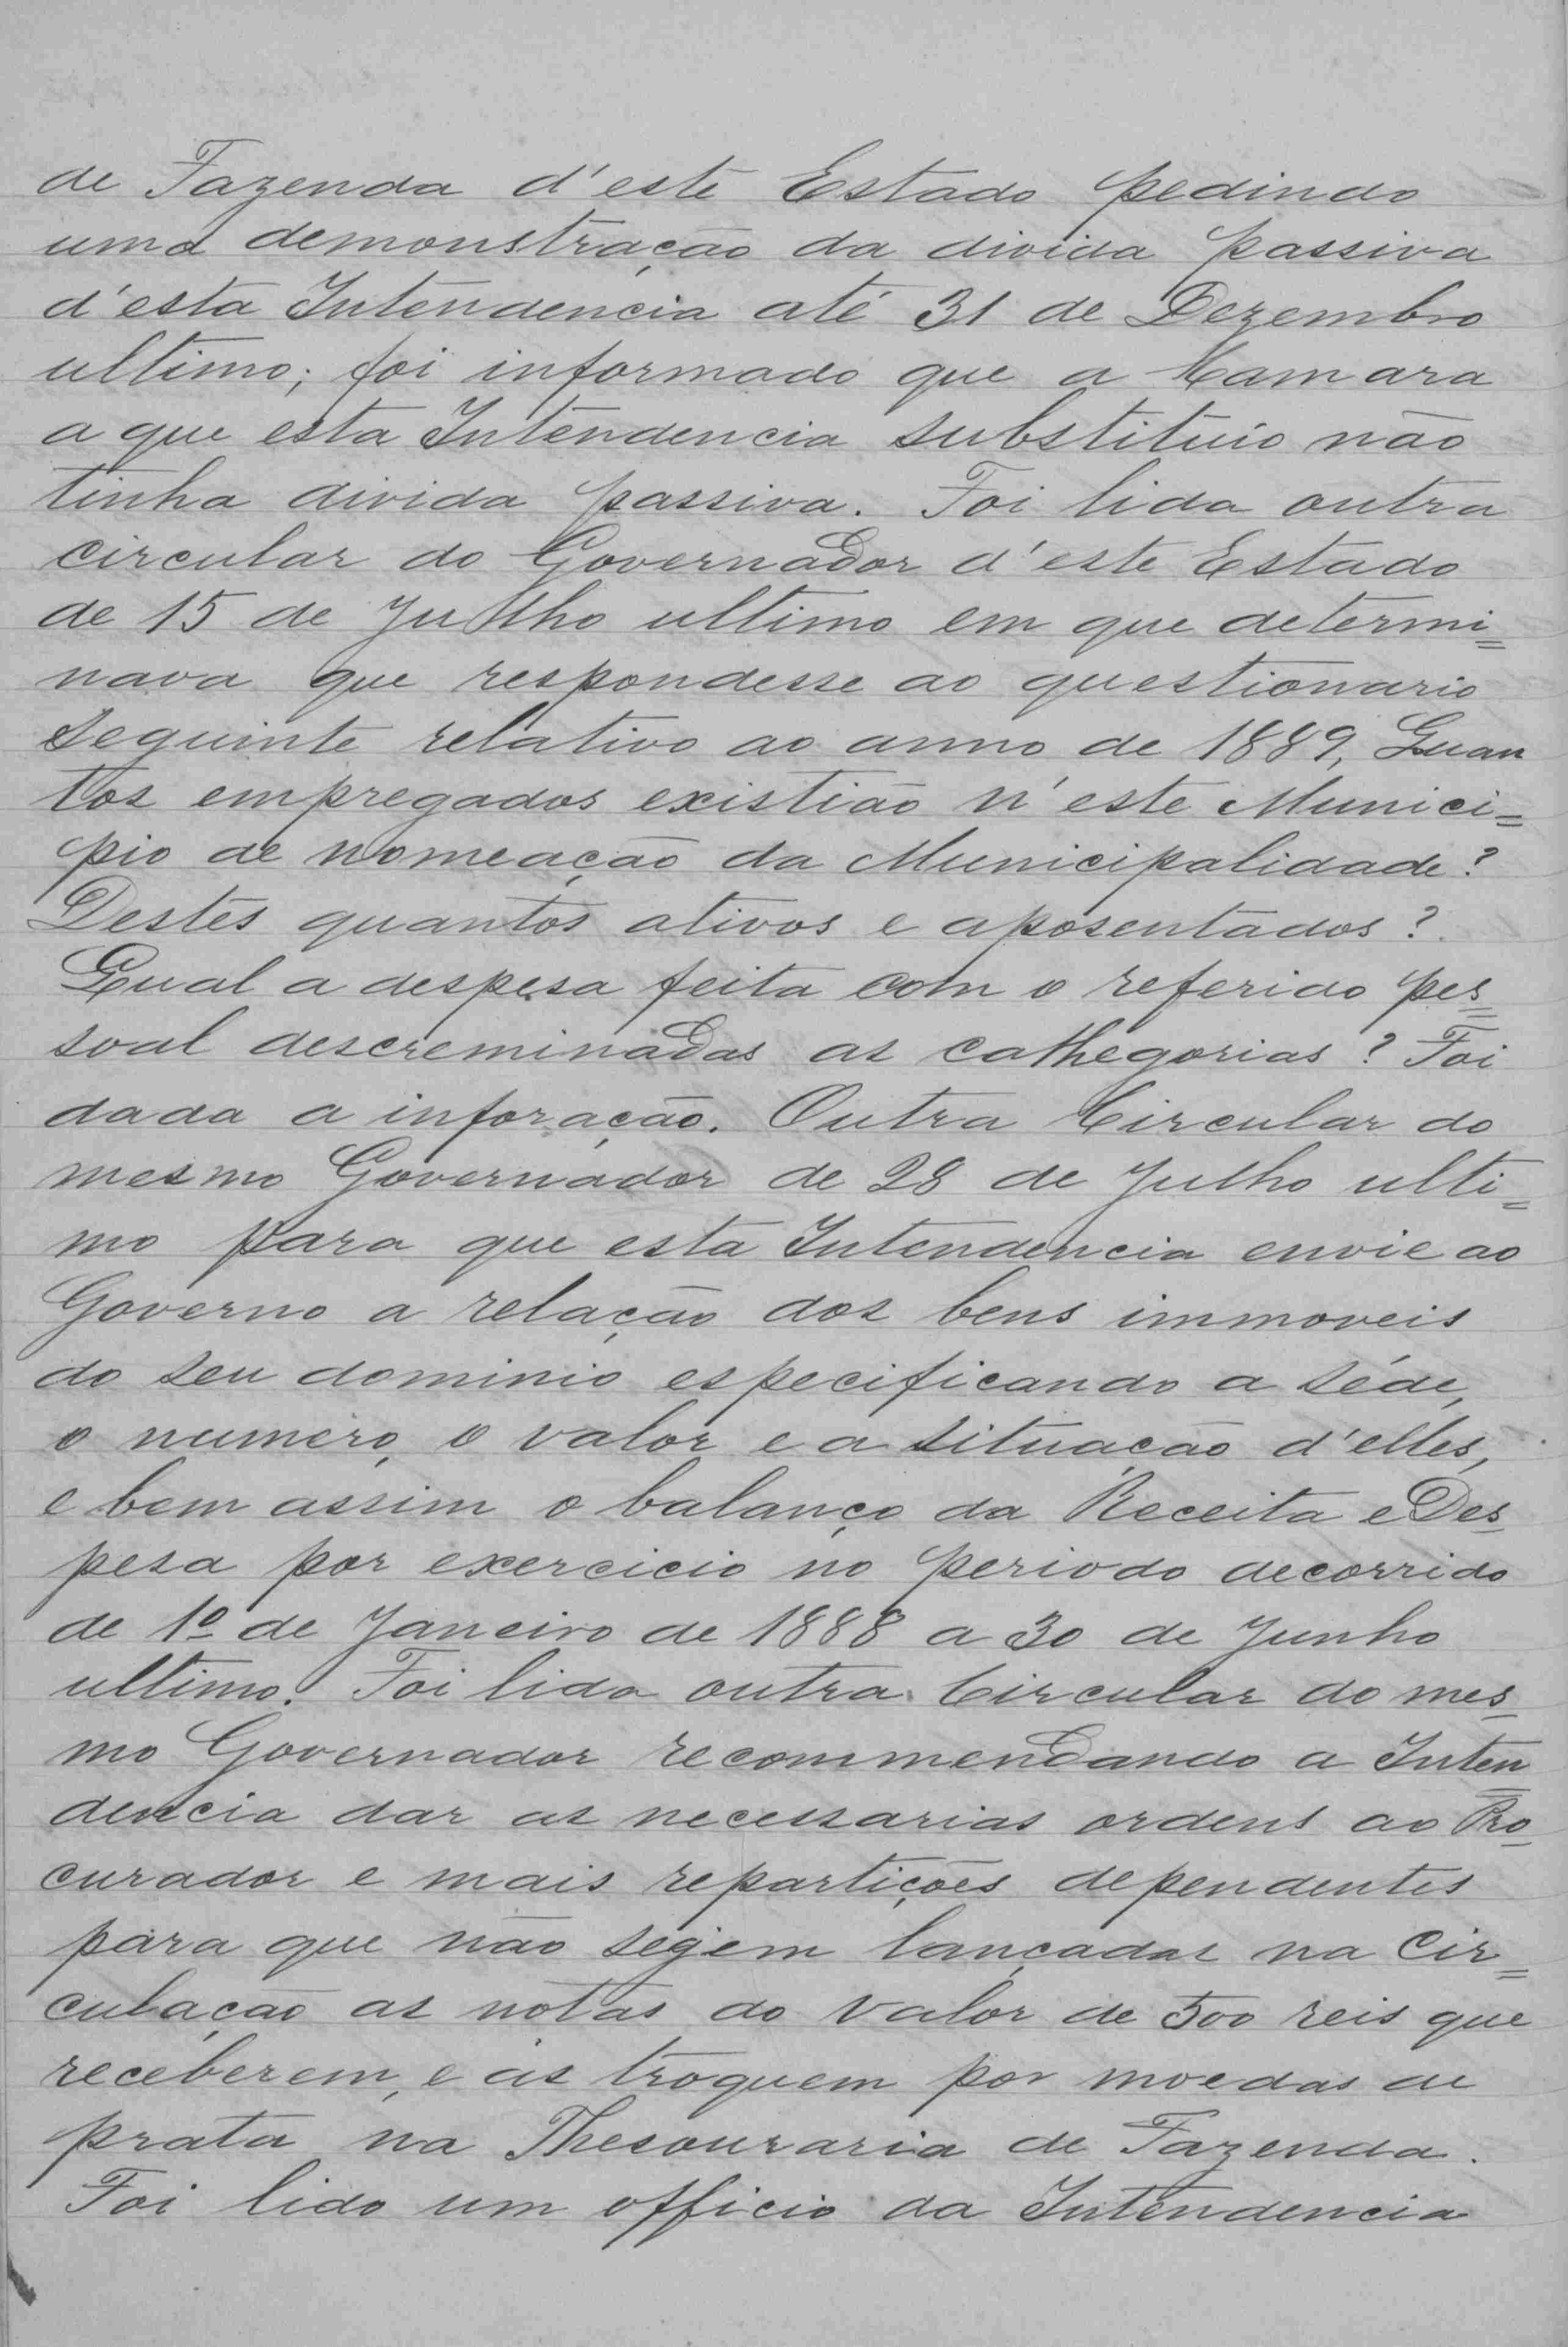 de Fazenda d'este Estado pedindo
uma demonstração da divida passiva
d'esta Intendencia até 31 de Dezembro
ultimo; foi informado que a Camara
a que esta Intendencia substituio não
tinha divida passiva. Foi lida outra
circular do Governador d'este Estado
de 15 de Julho ultimo em que determi=
nava que respondesse ao questionario
seguinte relativo ao anno de 1889, Quan
tos empregados existião n'este Munici=
pio de nomeação da Municipalidade?
Destes quantos ativos e aposentados?
Qual a despesa feita com o referido pes=
soal descreminadas as cathegorias? Foi
dada a inforação. Outra Circular do
mesmo Governador de 28 de Julho ulti=
mo para que esta Intendencia envie ao
Governo a relação dos bens immoveis
do seu dominio especificando a séde,
o numero, o valor e a situação d'elles,
e bem assim o balanço da Receita e Des-
pesa por exercicio no periodo decorrido
de 1º de Janeiro de 1888 a 30 de Junho
ultimo. Foi lida outra Circular do mes-
mo Governador recommendando a Inten=
dencia dar as necessarias ordens ao Pro-
curador e mais repartições dependentes
para que não sejem lançadas na Cir=
culação as notas do valor de 500 reis que
receberem, e as troquem por moedas de
prata na Thesouraria de Fazenda.
Foi lido um officio da Intendencia